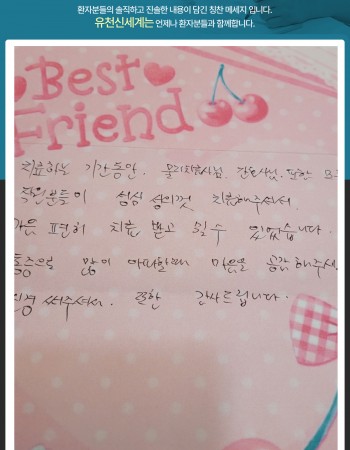 환자분들의 솔직하고 진솔한 내용이 담긴 칭찬 메세지 입니다.
유천신세계는 언제나 환자분들과 함께합니다.
Best
Friend
치료하는 기간동안. 물리치료사님, 간호사님, 또한 모
직원분들이 성심 성의껏 치료해주셔서.
마음 편히 치료 받고 쉴 수 있었습니다.
통증으로 많이 아파할때 마음을 공감해주셔
신경 써주셔서. 또한 감사드립니다.